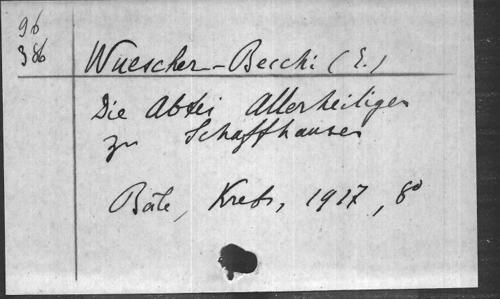 96
386
Wuescher-Becchi (E.)
Die Abtei Allerheiligen
zu Schaffhausen
Bâle, Krebs, 1917, 8°